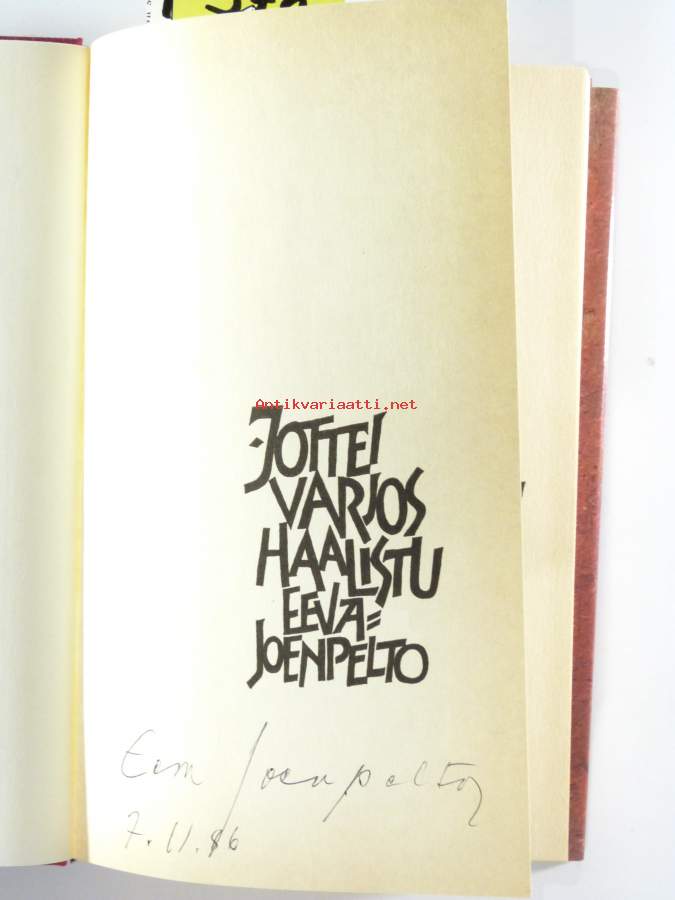 Antikvariaatti.net
JOTTEI
VARJOS
HAALISTU
EEVA=
JOENPELTO
Eeva Joenpelto
7.11.86